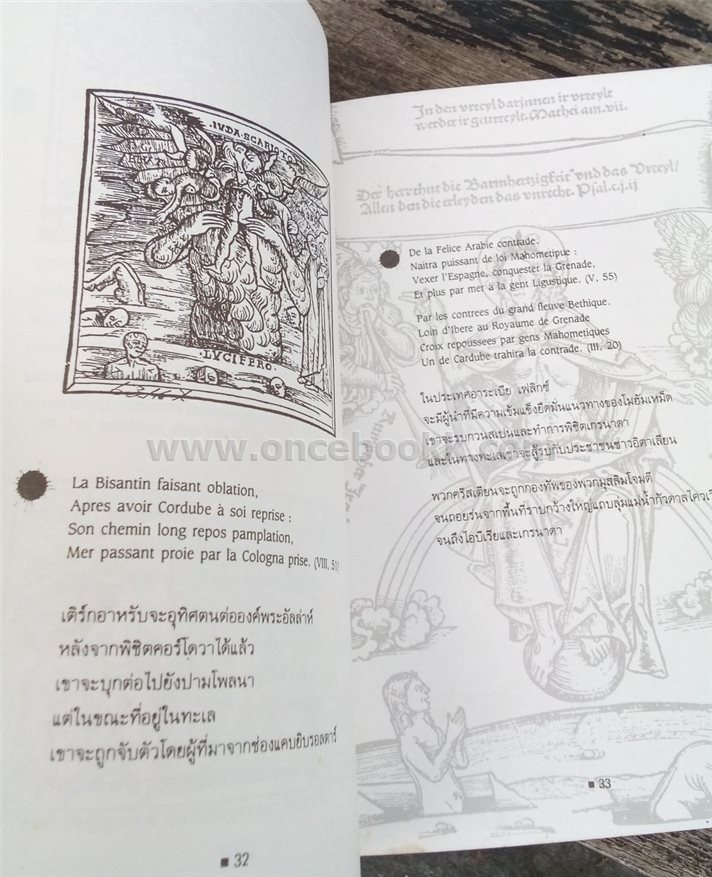 IVDA·SCARIOTO
·LVCIFERO·
La Bisantin faisant oblation,
Apres avoir Cordube à soi reprise :
Son chemin long repos pamplation,
Mer passant proie par la Cologna prise. (VIII, 51)
เติร์กอาหรับจะอุทิศตนต่อองค์พระอัลล่าห์
หลังจากพิชิตคอร์โดวาได้แล้ว
เขาจะบุกต่อไปยังปามโพลนา
แต่ในขณะที่อยู่ในทะเล
เขาจะถูกจับตัวโดยผู้ที่มาจากช่องแคบยิบรอลตาร์
■ 32
In den vrteyl darinnen ir vrteylt
werdet ir geurteylt. Mathei am. vii.
Der hat thut die Barmhertzigkeit vnd das Vrteyl/
Allen den die erleyden das vnrecht. Psal. c.ij.ij
De la Felice Arabie contrade.
Naitra puissant de loi Mahometipue :
Vexer l'Espagne, conquester la Grenade,
Et plus par mer a la gent Ligustique. (V, 55)
Par les contrees du grand fleuve Bethique.
Loin d'Ibere au Royaume de Grenade
Croix repoussees par gens Mahometiques
Un de Cardube trahira la contrade. (III, 20)
ในประเทศอาระเบีย เฟลิกซ์
จะมีผู้นำที่มีความเข้มแข็งยึดมั่นแนวทางของโมฮัมเหม็ด
เขาจะรบกวนสเปนและทำการพิชิตเกรนาดา
และในทางทะเลเขาจะสู้รบกับประชาชนชาวอิตาเลียน
พวกคริสเตียนจะถูกกองทัพของพวกมุสลิมโจมตี
จนถอยร่นจากพื้นที่ราบกว้างใหญ่แถบลุ่มแม่น้ำกัวดาลไควเวีร
จนถึงไอบีเรียและเกรนาดา
■ 33